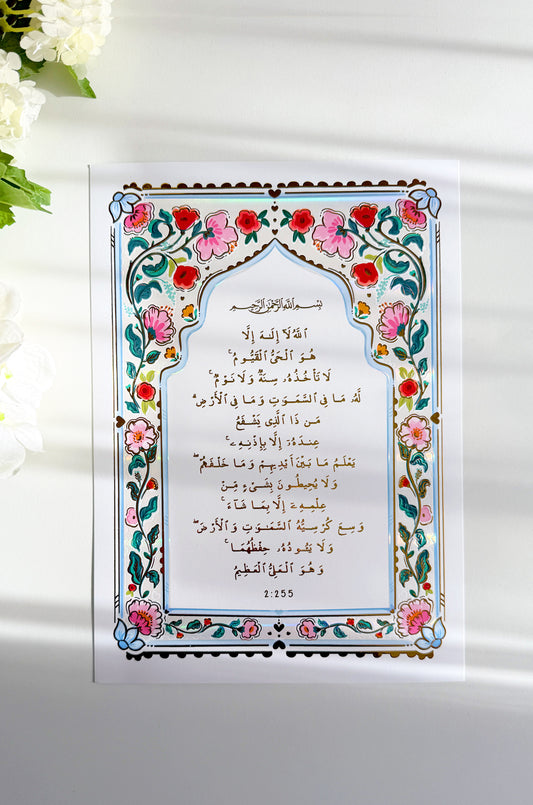 بِسْمِ اللَّهِ الرَّحْمَٰنِ الرَّحِيمِ
اللَّهُ لَآ إِلَـٰهَ إِلَّا
هُوَ الْحَيُّ الْقَيُّومُ ۚ
لَا تَأْخُذُهُۥ سِنَةٌ وَلَا نَوْمٌ ۚ
لَّهُۥ مَا فِى السَّمَـٰوَٰتِ وَمَا فِى الْأَرْضِ ۗ
مَن ذَا الَّذِى يَشْفَعُ
عِندَهُۥٓ إِلَّا بِإِذْنِهِۦ ۚ
يَعْلَمُ مَا بَيْنَ أَيْدِيهِمْ وَمَا خَلْفَهُمْ ۖ
وَلَا يُحِيطُونَ بِشَىْءٍ مِّنْ
عِلْمِهِۦٓ إِلَّا بِمَا شَآءَ ۚ
وَسِعَ كُرْسِيُّهُ السَّمَـٰوَٰتِ وَالْأَرْضَ ۖ
وَلَا يَـُٔودُهُۥ حِفْظُهُمَا ۚ
وَهُوَ الْعَلِىُّ الْعَظِيمُ
2:255